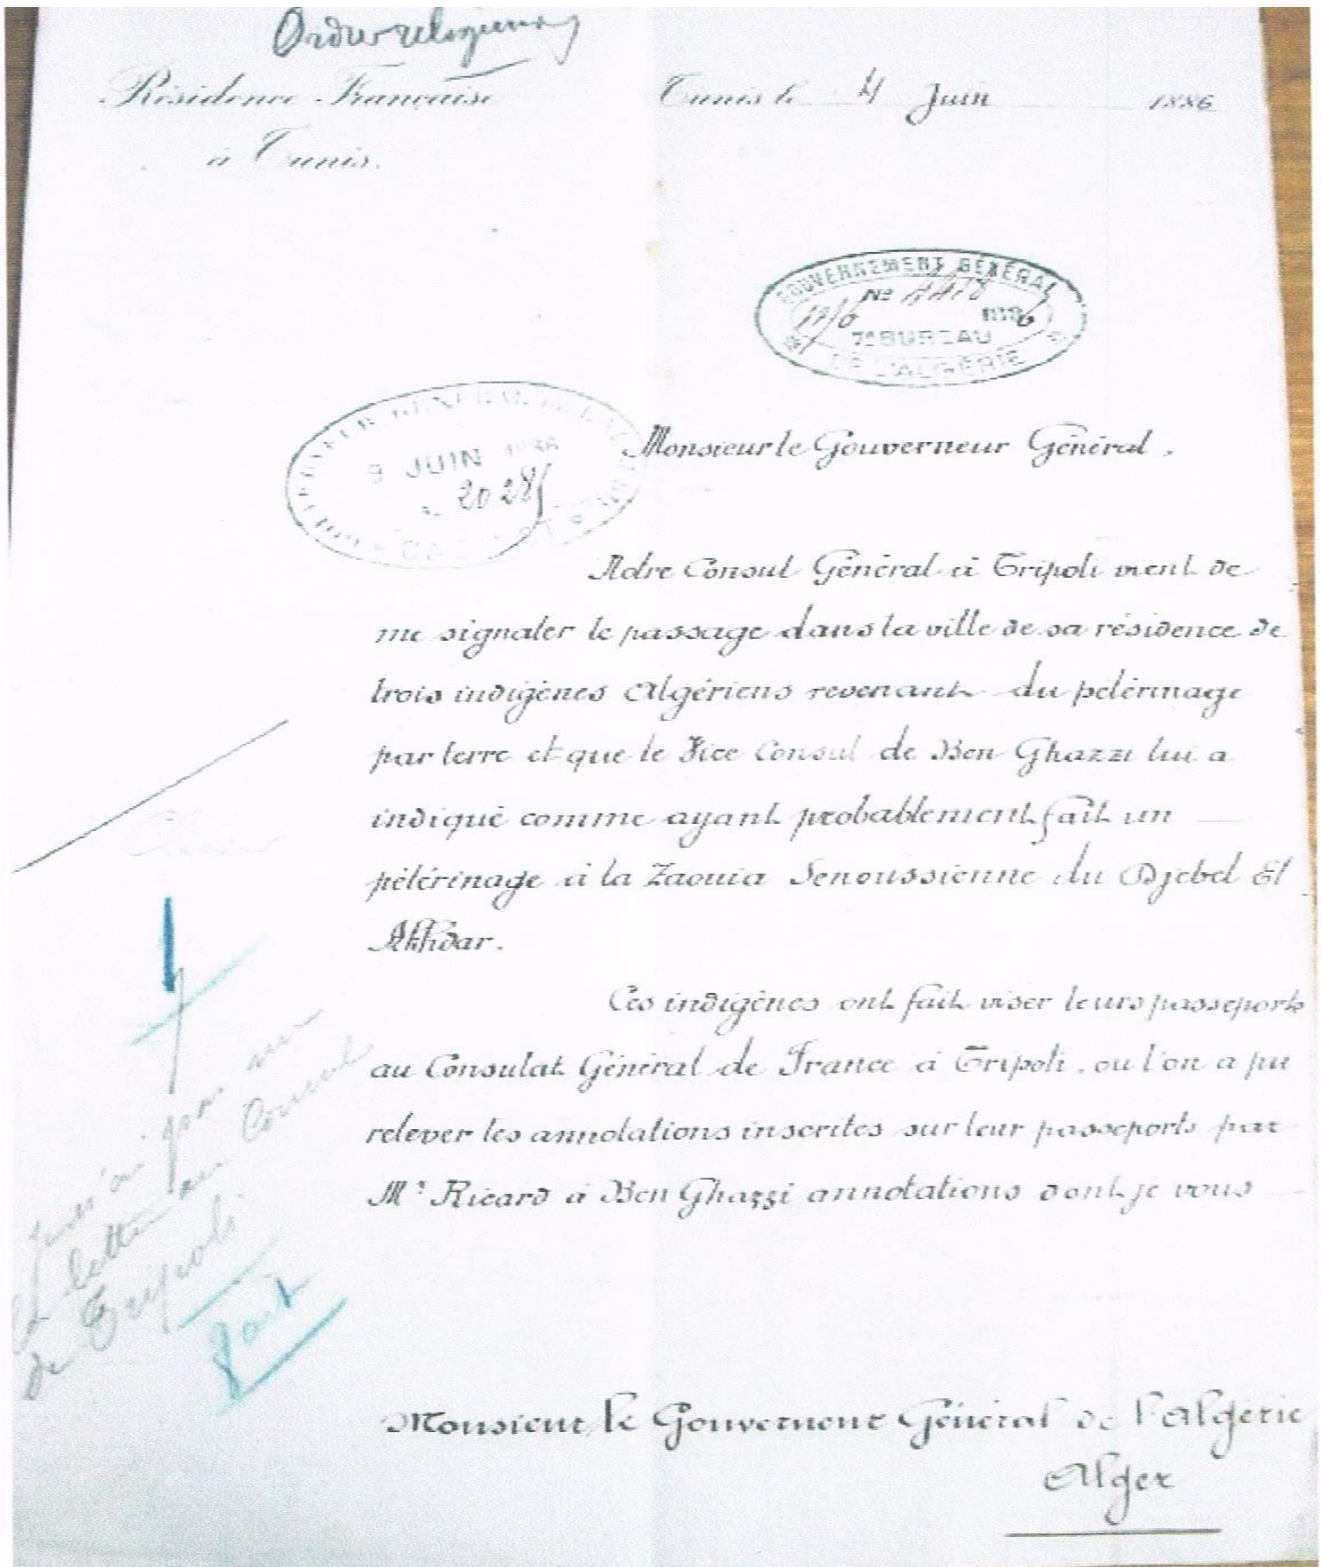 Ordres religieux
Résidence Française
à Tunis.
Tunis le 4 Juin 1886
GOUVERNEMENT GÉNÉRAL
No
11/6 1886
7e BUREAU
DE L'ALGÉRIE
9 JUIN 1886
2028
Monsieur le Gouverneur Général,
Notre Consul Général à Tripoli vient de
me signaler le passage dans la ville de sa résidence de
trois indigènes Algériens revenant du pèlerinage
par terre et que le Vice Consul de Ben Ghazzi lui a
indiqué comme ayant probablement fait un
pélérinage à la Zaouia Senoussienne du Djebel El
Akhdar.
Ces indigènes ont fait viser leurs passeports
au Consulat Général de France à Tripoli. ou l'on a pu
relever les annotations inscrites sur leur passeports par
Mr Ricard à Ben Ghazzi annotations dont je vous
lettre au Consul
de Tripoli
fait
Monsieur le Gouverneur Général de l'Algérie
Alger